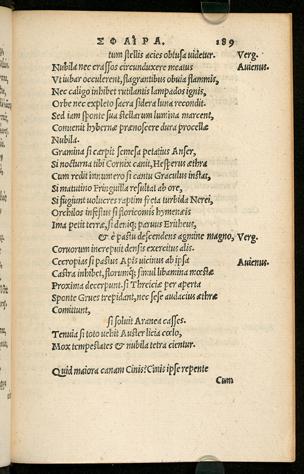 ΣΦΑΙΡΑ. 189
tum stellis acies obtusa videtur. Verg.
Nubila nec crassos circunduxere meatus Avienus.
Vt iubar occulerent, flagrantibus obuia flammis,
Nec caligo inhibet rutilantis lampados ignis,
Orbe nec expleto sacra sidera luna recondit.
Sed iam sponte sua stellarum lumina marcent,
Conuenit hybernæ prænoscere dura procellæ
Nubila.
Gramina si carpit semesa petaïus Anser,
Si nocturna tibi Cornix canit, Hesperus æthra
Cum redit innumero si cantu Graculus instat,
Si matutino Fringuilla resultat ab ore,
Si fugiunt volucres raptim si eta turbida Nerei,
Orchilos infestus si floricomis hymenæis
Ima petit terræ, si denique; paruus Eritheus,
& è pastu descendens agmine magno, Verg.
Coruorum increpuit densis exercitus alis.
Cecropias si pastus Apis vicinus ab ipsa Avienus.
Castra inhibet, florumq; simul libamina mœstæ
Proxima decerpunt. si Threiciæ per aperta
Sponte Grues trepidant, nec sese audacius æthræ
Comittunt,
si soluit Aranea casses.
Tenuia si toto vehit Auster licia cœlo,
Mox tempestates & nubila tetra cientur.
Quid maiora canam Cinis? Cinis ipse repente
Cum